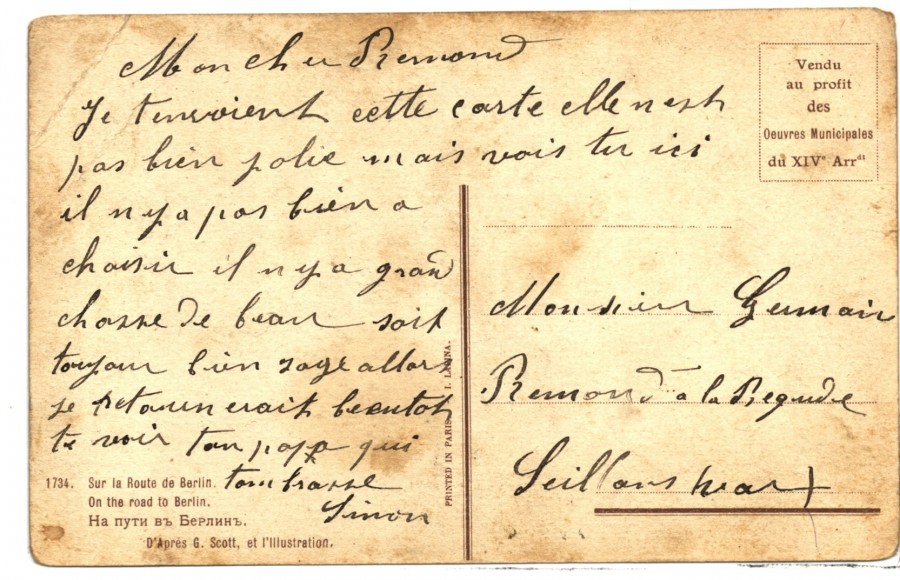 Mon cher Remond
Je tenvoient cette carte elle nest
pas bien jolie mais vois tu ici
il n y a pas bien a
choisir il n y a grand
chosse de beau soit
toujour bien sage allor
je retournerait beentot
te voir ton papa qui
tombrasse
Simon
1734. Sur la Route de Berlin.
On the road to Berlin.
На пути въ Берлинъ.
D'Après G. Scott, et l'Illustration.
PRINTED IN PARIS. I. LAPINA.
Vendu
au profit
des
Oeuvres Municipales
du XIVe Arrdt
Monsieur Germain
Remond à la Regude
Seillans Var